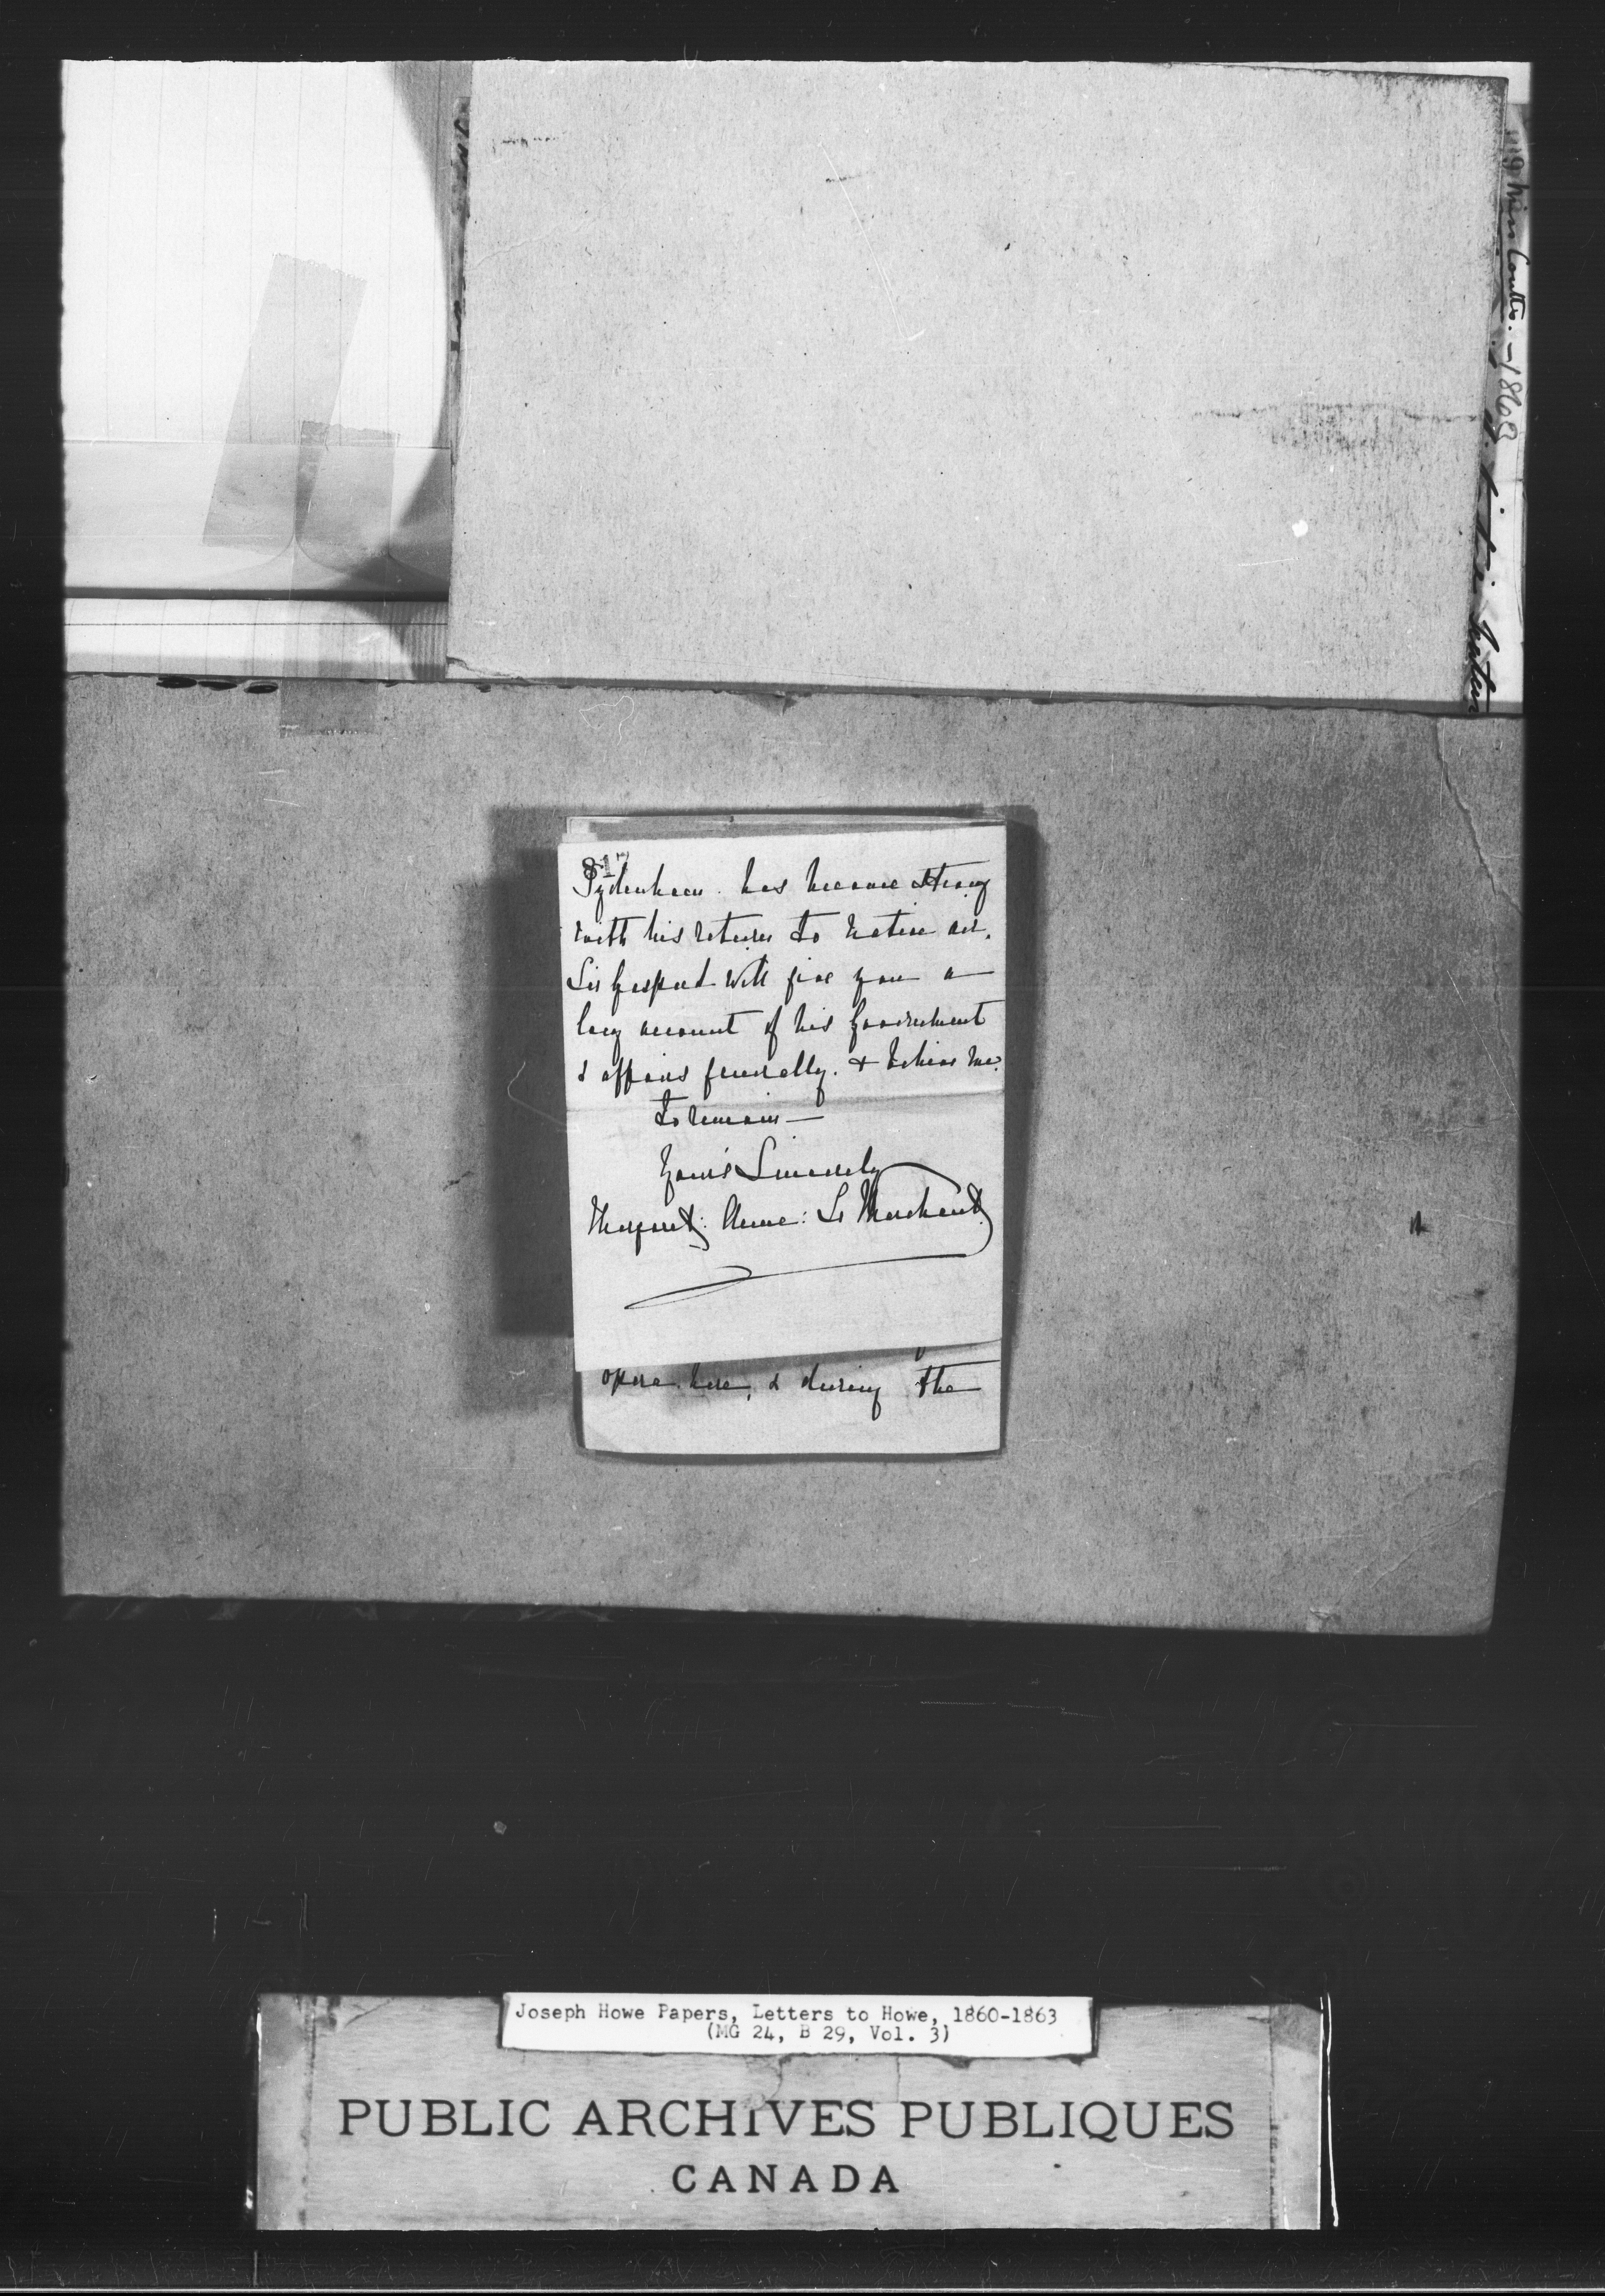 119 Miss Coutts. - 1868
817
Sydenham has become strong
with his return to native air.
Sir Gaspard will give you a
long account of his Government
& affairs generally. & believe me.
to remain —
Your's Sincerely
Margaret: Anne: Le Marchant.
opera here, & during the
Joseph Howe Papers, Letters to Howe, 1860-1863
(MG 24, B 29, Vol. 3)
PUBLIC ARCHIVES PUBLIQUES
CANADA